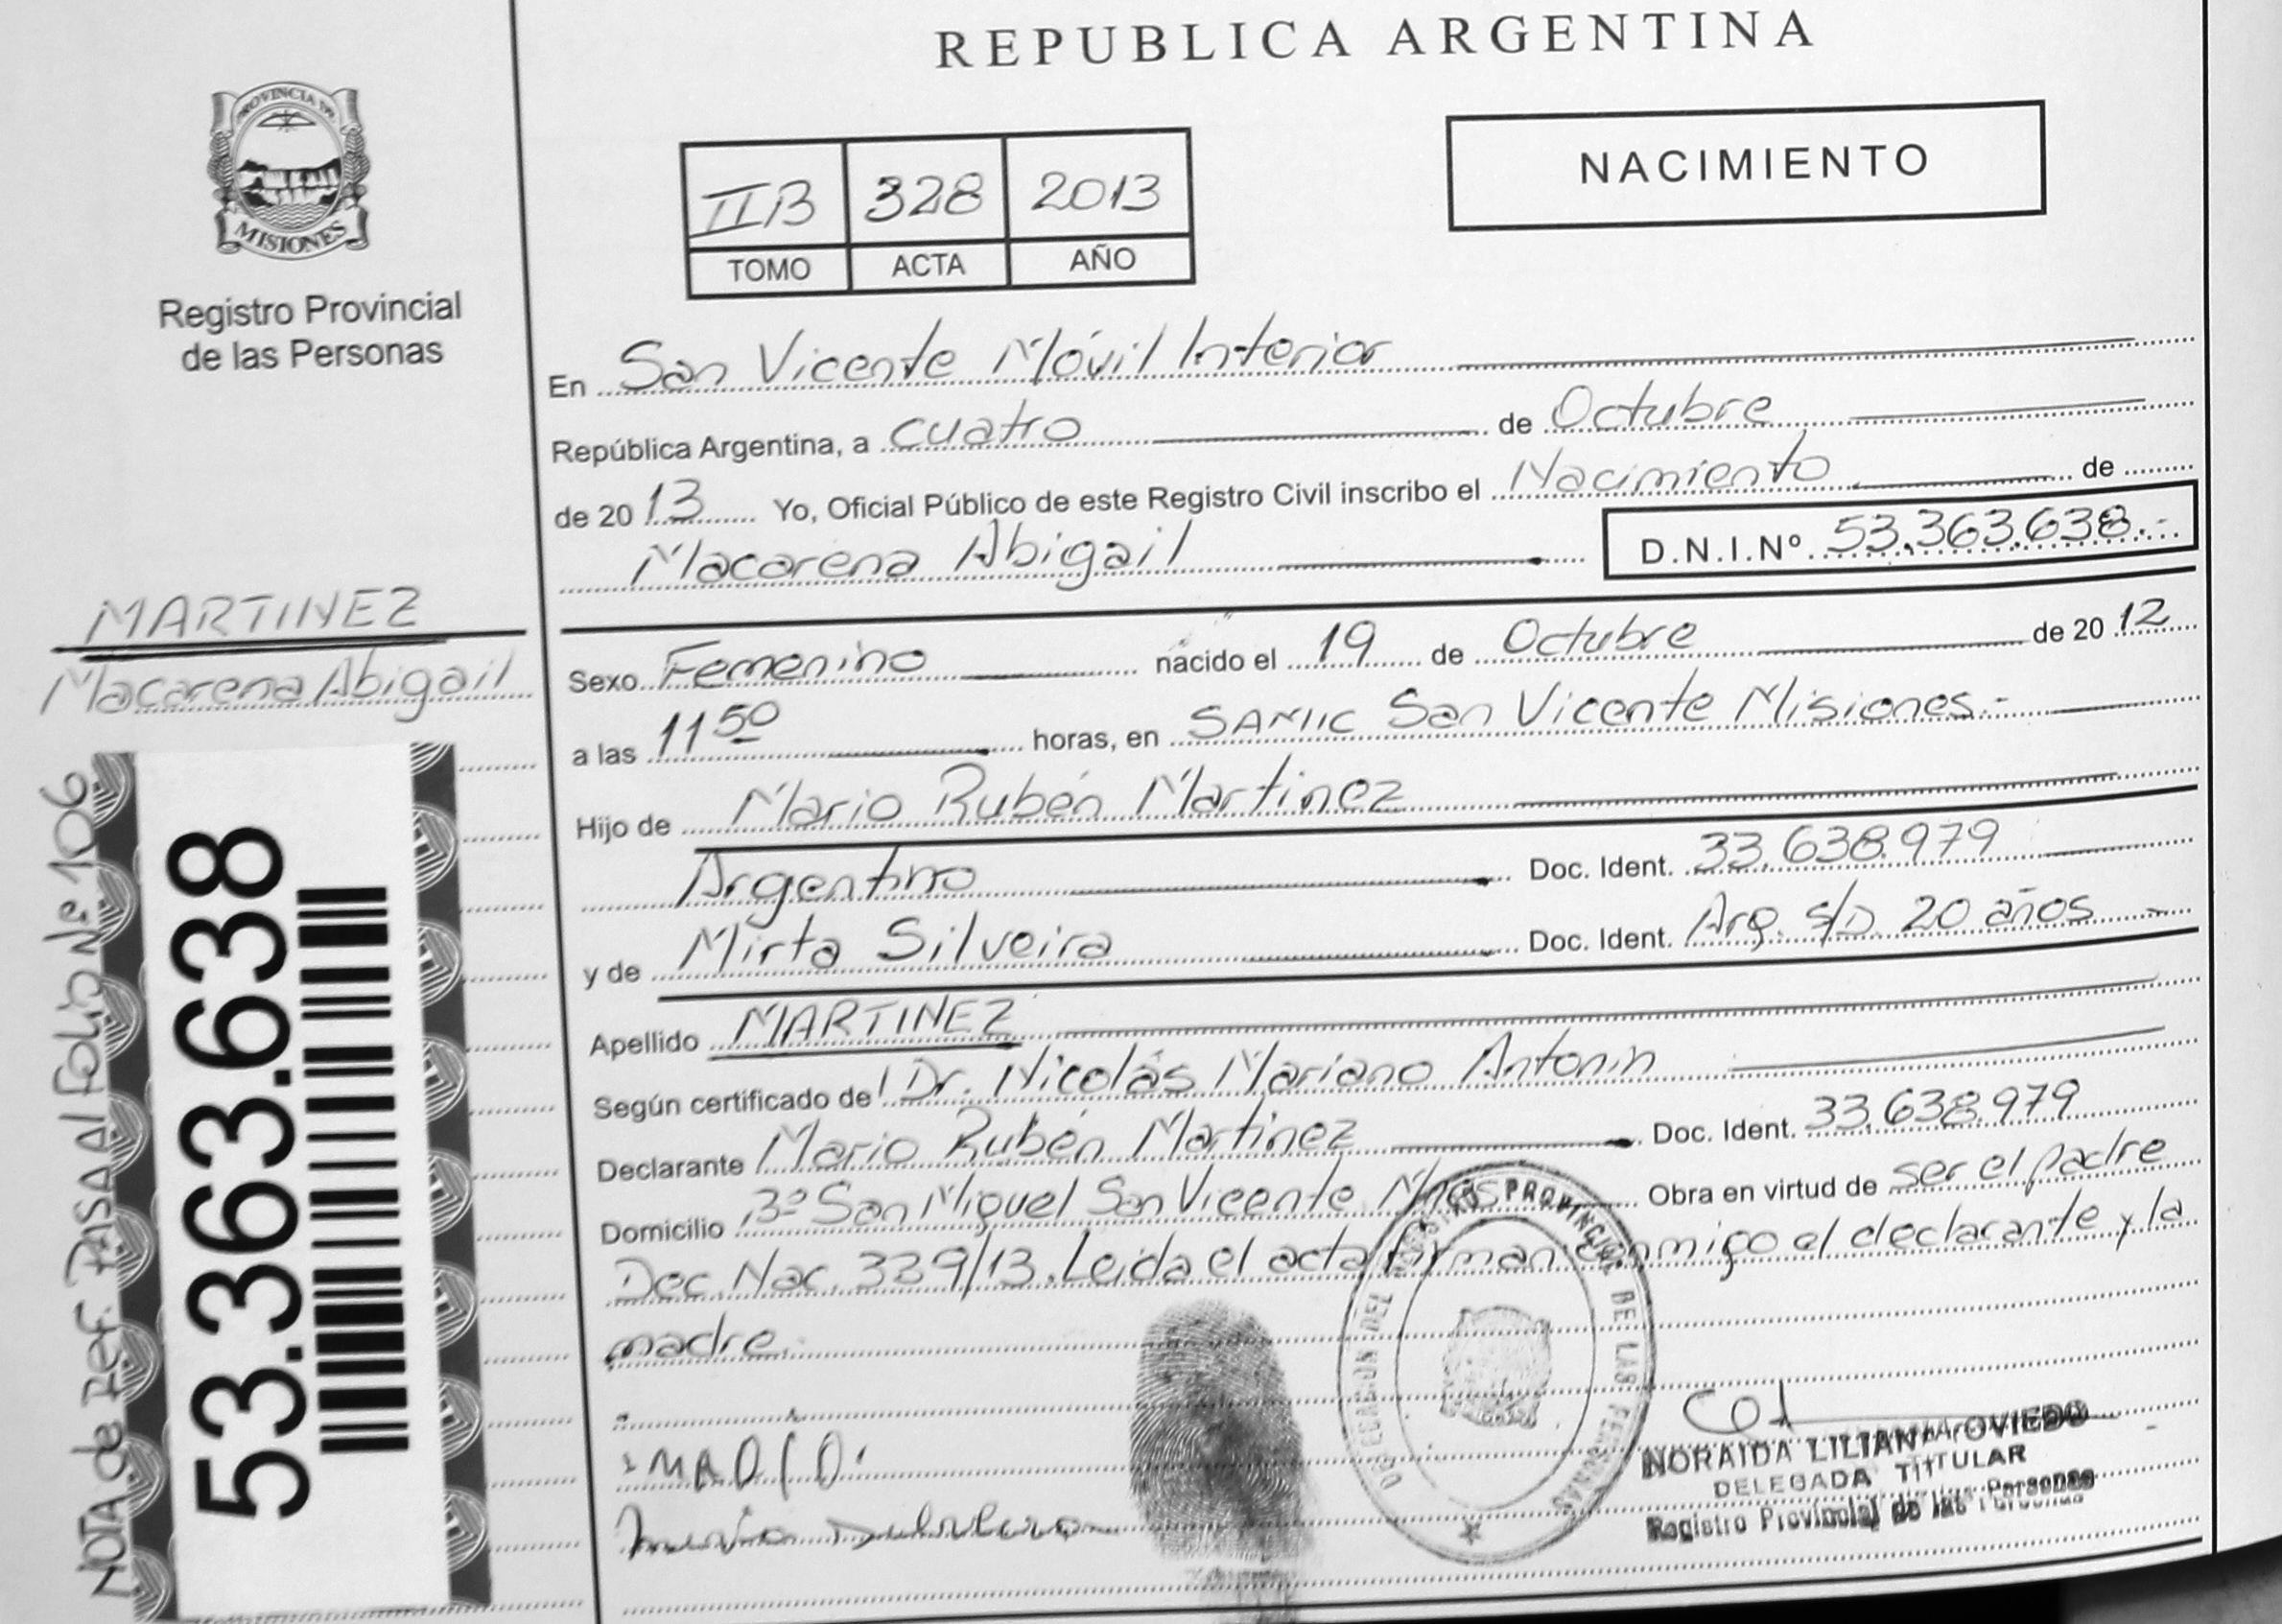 REPUBLICA ARGENTINA
PROVINCIA DE
MISIONES
Registro Provincial
de las Personas
IIB 328 2013
TOMO ACTA AÑO
NACIMIENTO
En San Vicente Móvil Interior
República Argentina, a cuatro de Octubre
de 2013 Yo, Oficial Público de este Registro Civil inscribo el Nacimiento de
Macarena Abigail D.N.I.Nº 53.363.638.-
MARTINEZ
Macarena Abigail
Sexo Femenino nacido el 19 de Octubre de 2012
a las 11 50 horas, en SAMIC San Vicente Misiones.-
Hijo de Mario Rubén Martinez
Argentino Doc. Ident. 33.638.979
y de Mirta Silveira Doc. Ident. Arg. s/D. 20 años
Apellido MARTINEZ
Según certificado de Dr. Nicolás Mariano Antonin
Declarante Mario Rubén Martinez Doc. Ident. 33.638.979
Domicilio Bº San Miguel San Vicente Mnes Obra en virtud de ser el padre
Dec. Nac. 339/13. Leida el acta firman conmigo el declarante y la
madre.
MARIO
NOTA de REF. PASA Al Folio Nº 106
53.363.638
DELEGACION DEL REGISTRO PROVINCIAL DE LAS PERSONAS
NORAIDA LILIANA OVIEDO
DELEGADA TITULAR
Registro Provincial de las Personas